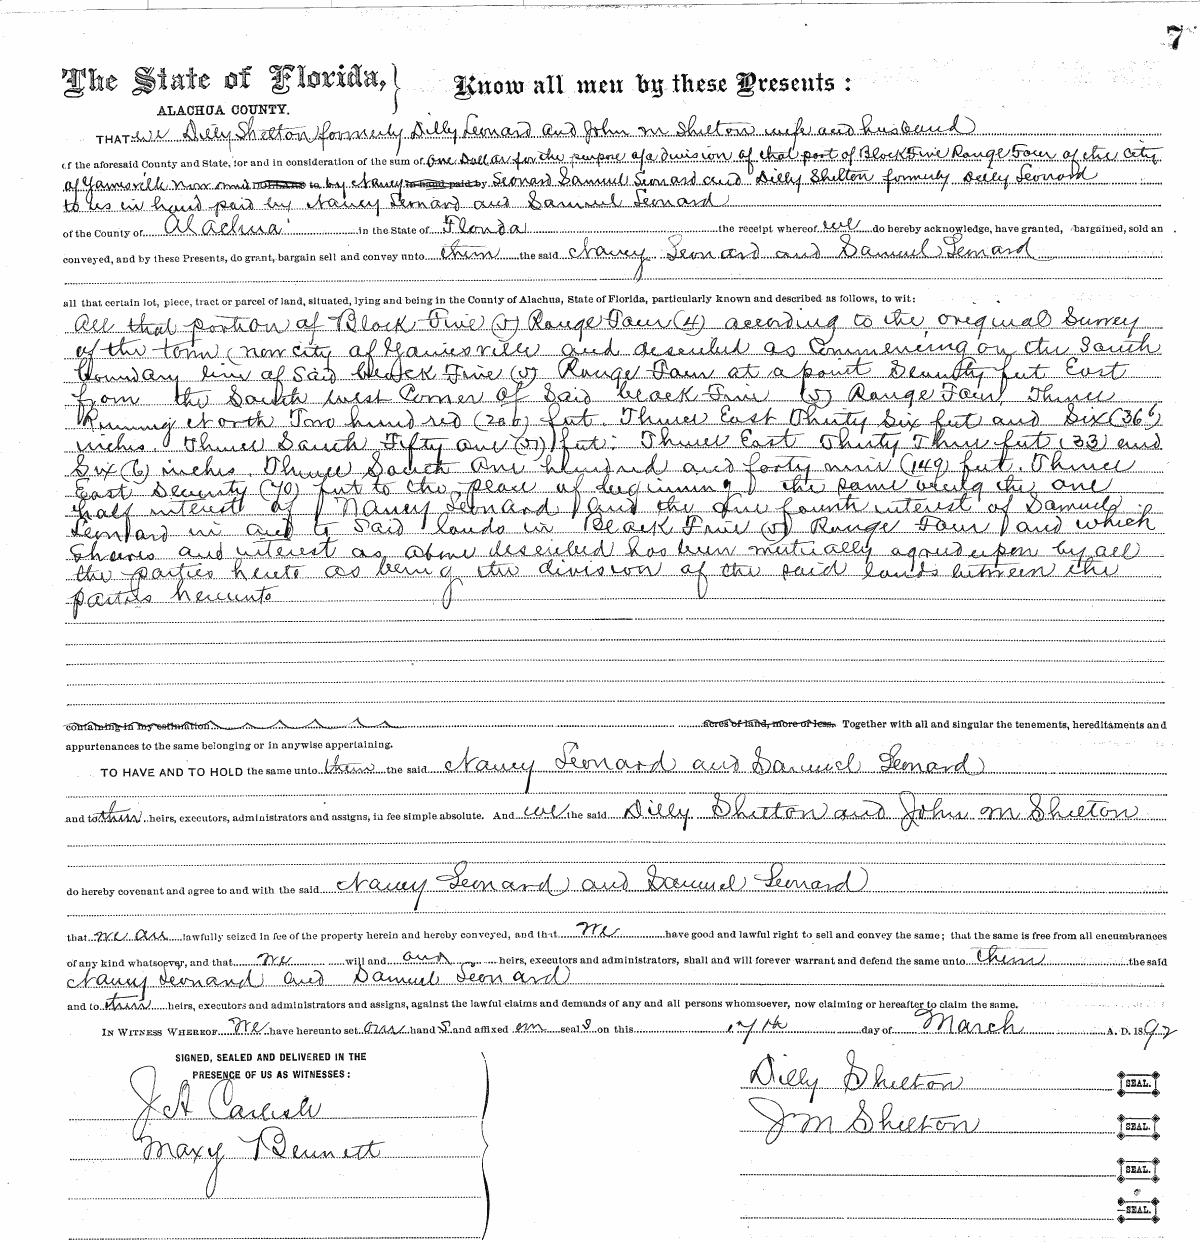 7
The State of Florida,
Know all men by these Presents :
ALACHUA COUNTY.
THAT we Dilly Shelton formerly Dilly Leonard and John M Shelton wife and husband
of the aforesaid County and State, for and in consideration of the sum of One Dollar for the purpose of a division of that part of Block Five Range Four of the City
of Gainesville now owned by Nancy Leonard Samuel Leonard and Dilly Shelton formerly Dilly Leonard
to us in hand paid by Nancy Leonard and Samuel Leonard
of the County of Alachua in the State of Florida the receipt whereof we do hereby acknowledge, have granted, bargained, sold an
conveyed, and by these Presents, do grant, bargain sell and convey unto them the said Nancy Leonard and Samuel Leonard
all that certain lot, piece, tract or parcel of land, situated, lying and being in the County of Alachua, State of Florida, particularly known and described as follows, to wit:
All that portion of Block Five (5) Range Four (4) according to the original Survey
of the town (now city of Gainesville and described as Commencing on the South
boundary line of Said block Five (5) Range Four at a point Seventy feet East
from the South west Corner of Said block Five (5) Range Four, Thence
Running North Two hundred (200) feet. Thence East Thirty Six feet and Six (36 6)
inches. Thence South Fifty one (51) feet: Thence East Thirty Three feet (33) and
Six (6) inches. Thence South One hundred and forty nine (149) feet. Thence
East Seventy (70) feet to the place of beginning) the same being the one
half interest of Nancy Leonard and the one fourth interest of Samuel
Leonard in and to Said lands in Block Five (5) Range Four and which
Shares and interest as above described has been mutually agreed upon by all
the parties hereto as being the division of the said lands between the
parties hereunto
containing in my estimation acres of land, more or less. Together with all and singular the tenements, hereditaments and
appurtenances to the same belonging or in anywise appertaining.
TO HAVE AND TO HOLD the same unto them the said Nancy Leonard and Samuel Leonard
and to their heirs, executors, administrators and assigns, in fee simple absolute. And we the said Dilly Shelton and John M Shelton
do hereby covenant and agree to and with the said Nancy Leonard and Samuel Leonard
that we are lawfully seized in fee of the property herein and hereby conveyed, and that we have good and lawful right to sell and convey the same; that the same is free from all encumbrances
of any kind whatsoever, and that we will and our heirs, executors and administrators, shall and will forever warrant and defend the same unto them the said
Nancy Leonard and Samuel Leonard
and to their heirs, executors and administrators and assigns, against the lawful claims and demands of any and all persons whomsoever, now claiming or hereafter to claim the same.
IN WITNESS WHEREOF We have hereunto set our hand s and affixed our seal s on this 17th day of March A. D. 1892
SIGNED, SEALED AND DELIVERED IN THE
PRESENCE OF US AS WITNESSES :
J A Carlisle
Maxy Bennett
Dilly Shelton SEAL.
J M Shelton SEAL.
SEAL.
SEAL.